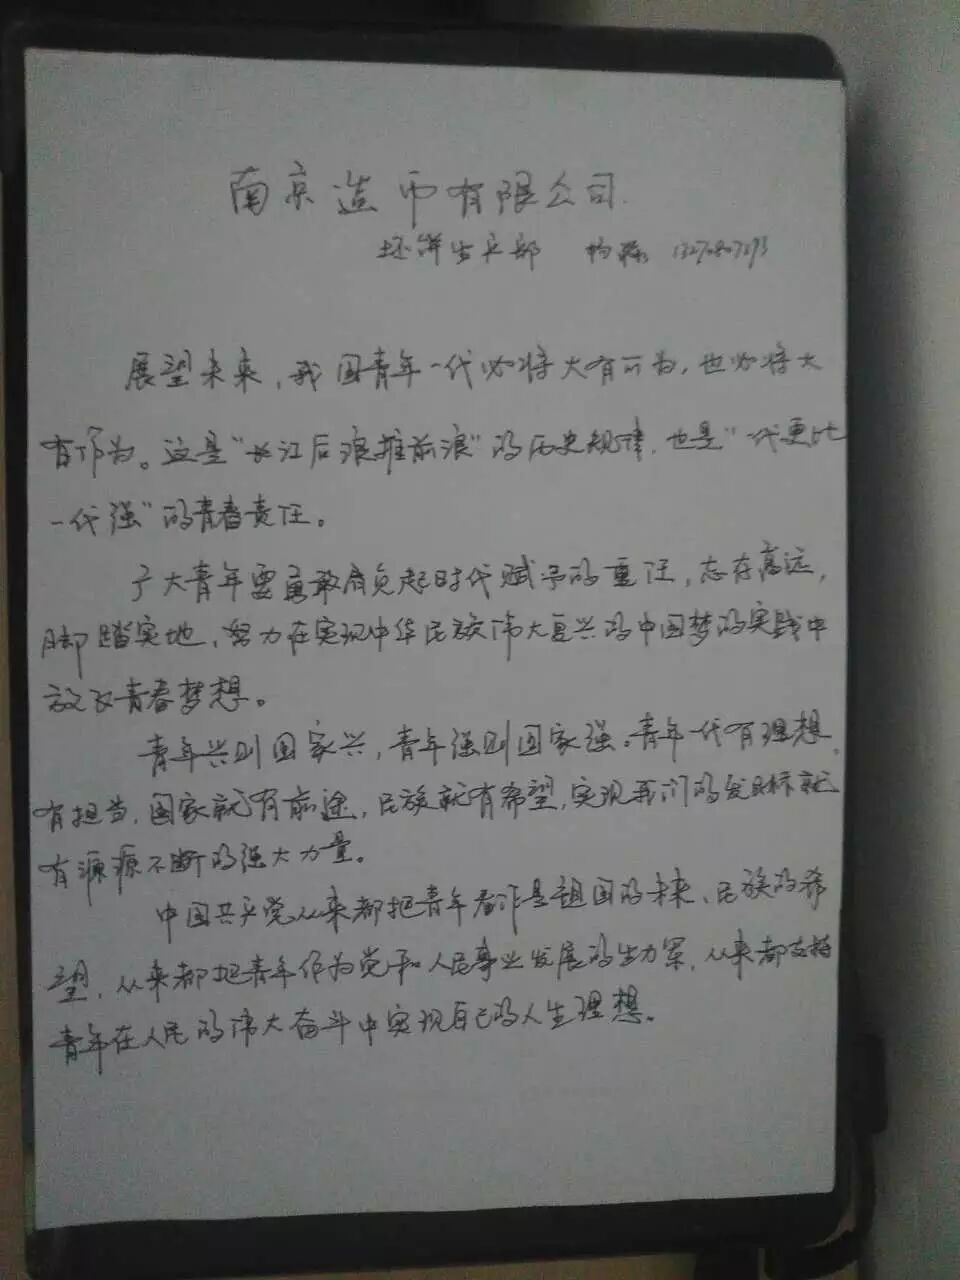 南京造币有限公司
坯饼生产部 杨
展望未来，我国青年一代必将大有可为，也必将大
有作为。这是“长江后浪推前浪”的历史规律，也是“一代更比
一代强”的青春责任。
广大青年要勇敢肩负起时代赋予的重任，志存高远，
脚踏实地，努力在实现中华民族伟大复兴的中国梦的实践中
放飞青春梦想。
青年兴则国家兴，青年强则国家强。青年一代有理想、
有担当，国家就有前途，民族就有希望，实现我们的发目标就
有源源不断的强大力量。
中国共产党从来都把青年看作是祖国的未来、民族的希
望，从来都把青年作为党和人民事业发展的生力军，从来都支持
青年在人民的伟大奋斗中实现自己的人生理想。